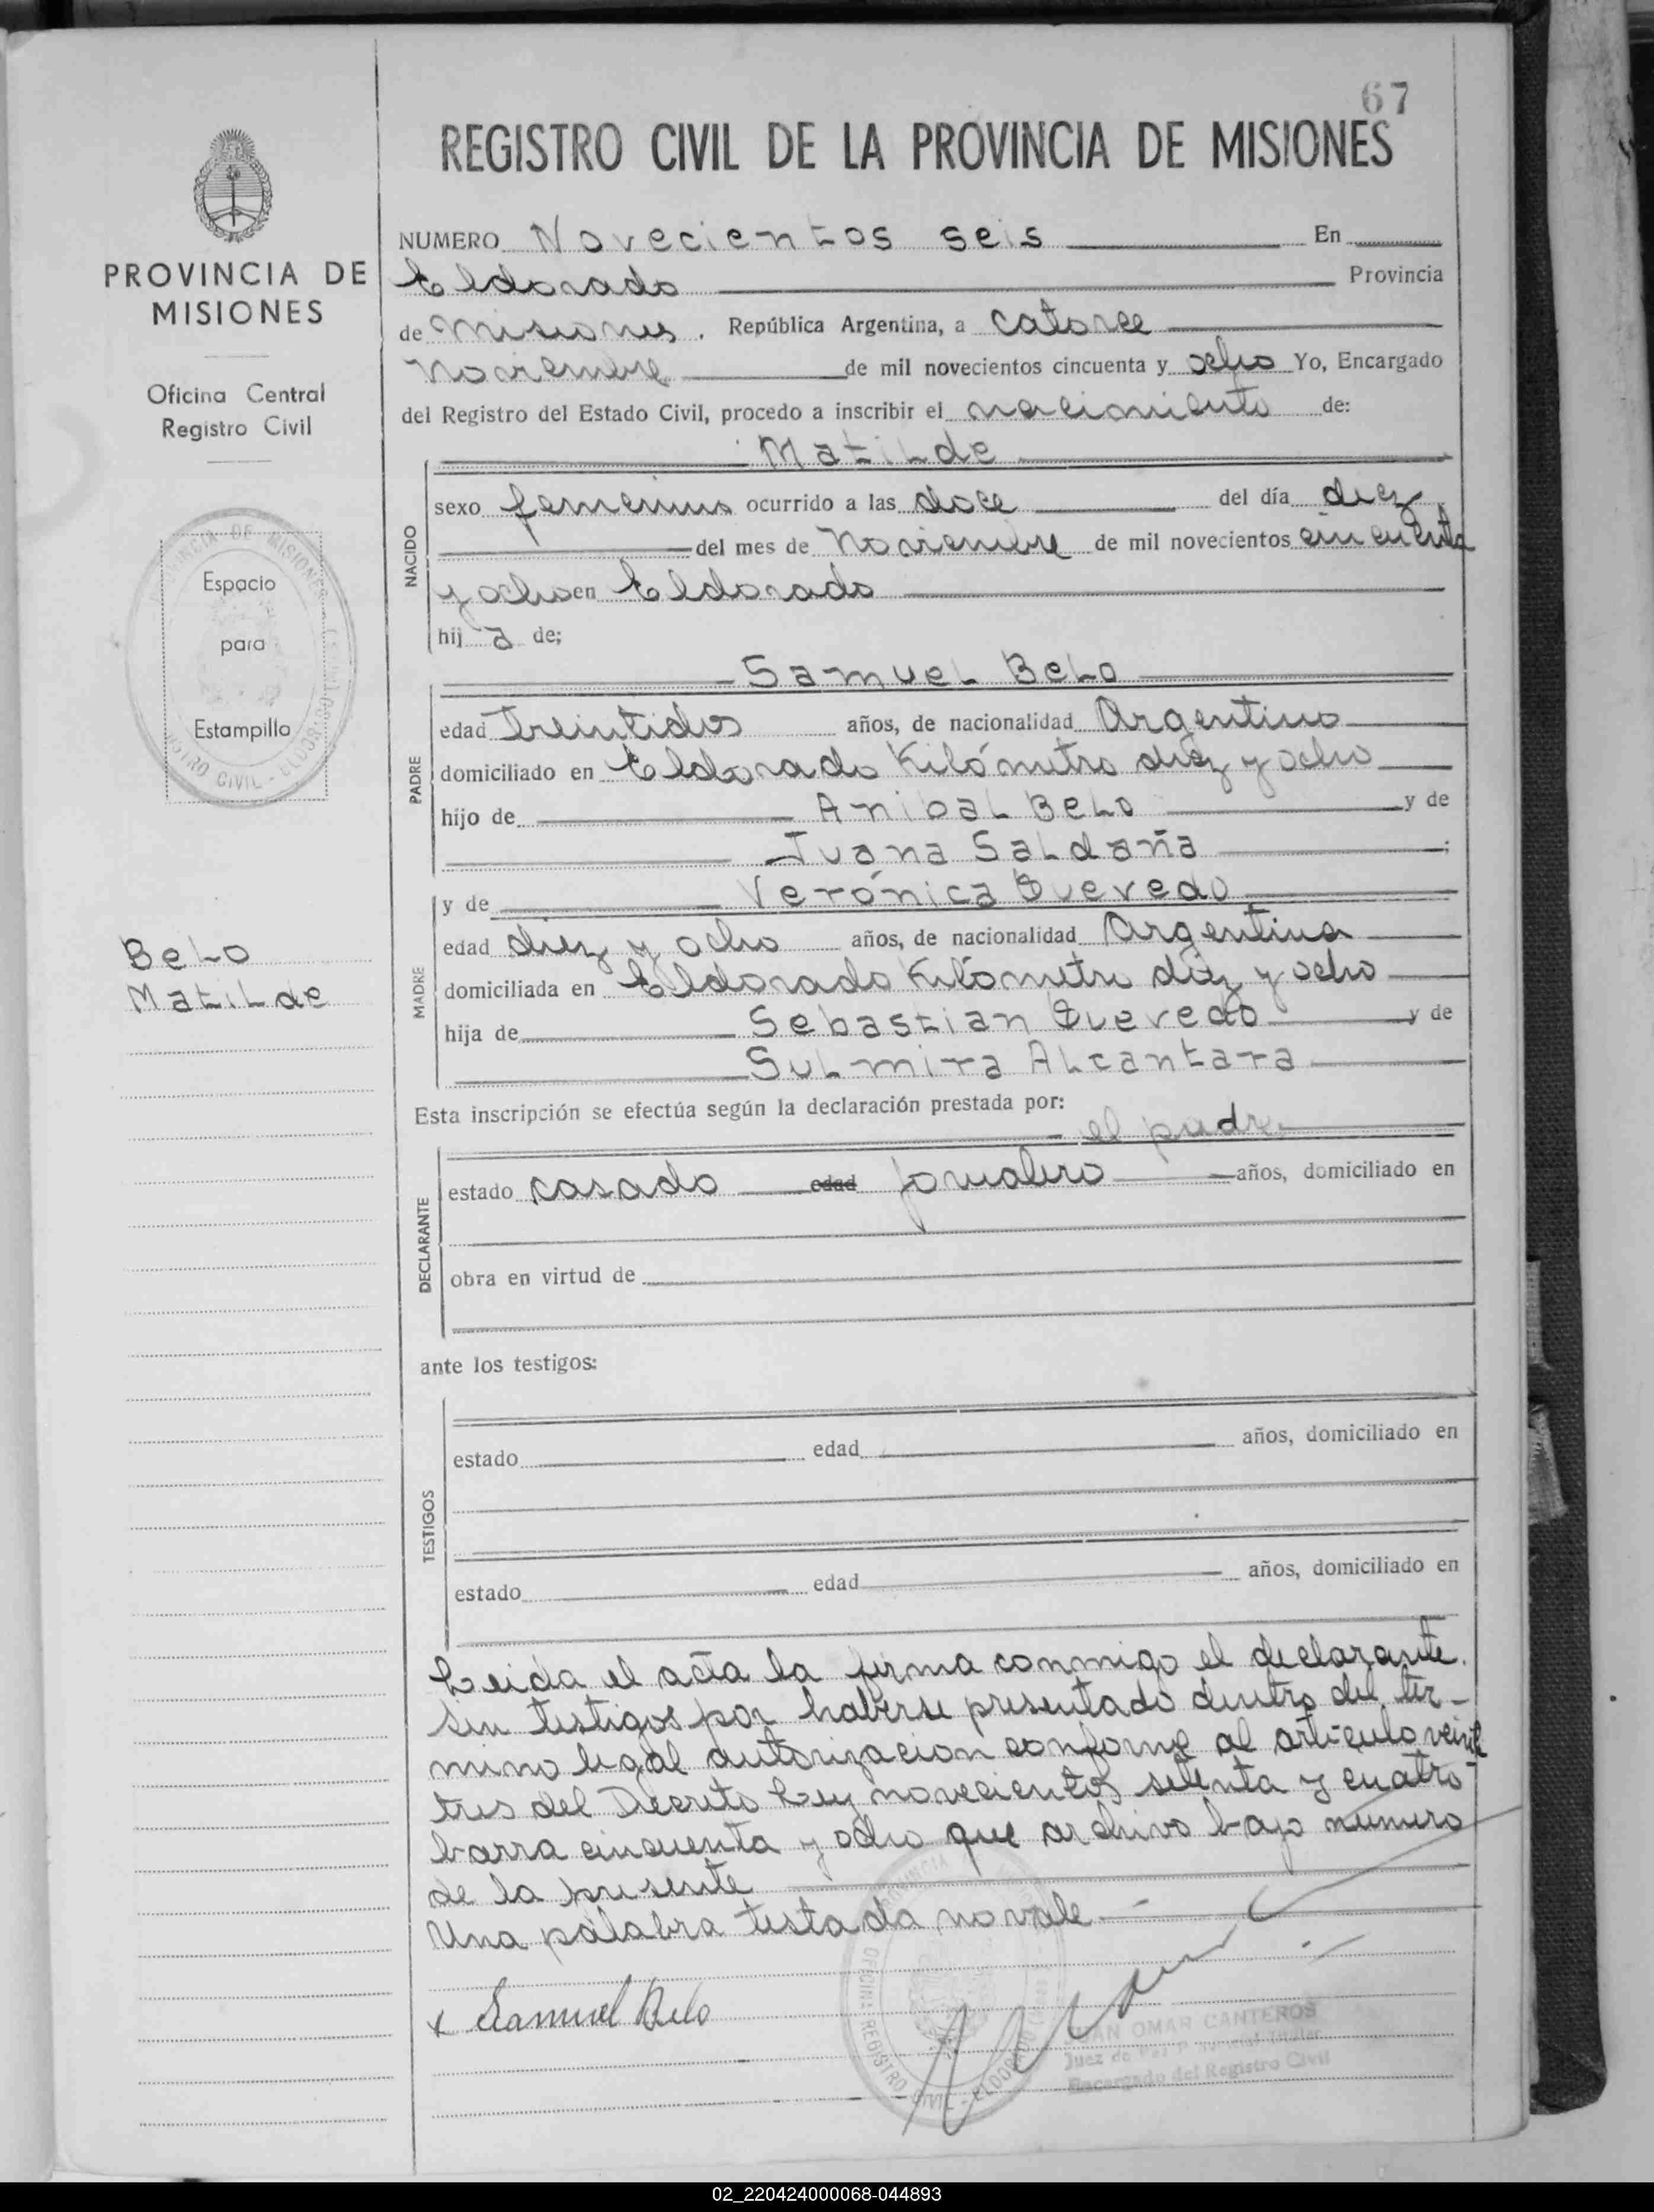 67
REGISTRO CIVIL DE LA PROVINCIA DE MISIONES
PROVINCIA DE
MISIONES
Oficina Central
Registro Civil
Espacio
para
Estampillo
Belo
Matilde
NUMERO Novecientos seis En
Eldorado Provincia
de Misiones. República Argentina, a catorce
Noviembre de mil novecientos cincuenta y ocho Yo, Encargado
del Registro del Estado Civil, procedo a inscribir el nacimiento de:
Matilde
NACIDO
sexo femenino ocurrido a las doce del día diez
del mes de Noviembre de mil novecientos cincuenta
y ocho en Eldorado
hij a de;
Samuel Belo
PADRE
edad Treintidos años, de nacionalidad Argentino
domiciliado en Eldorado Kilómetro diez y ocho
hijo de Anibal Belo y de
Juana Saldaña ;
y de Verónica Quevedo
MADRE
edad diez y ocho años, de nacionalidad Argentina
domiciliada en Eldorado Kilómetro diez y ocho
hija de Sebastian Quevedo y de
Sulmira Alcantara
Esta inscripción se efectúa según la declaración prestada por:
el padre
DECLARANTE
estado casado edad jornalero años, domiciliado en
obra en virtud de
ante los testigos:
TESTIGOS
estado edad años, domiciliado en
estado edad años, domiciliado en
Leida el acta la firma conmigo el declarante.
Sin testigos por haberse presentado dentro del tér-
mino legal autorizacion conforme al artículo veinti
tres del Decreto Ley novecientos setenta y cuatro
barra cincuenta y ocho que archivo bajo numero
de la presente
Una palabra testada no vale
x Samuel Belo
OFICINA REGISTRO CIVIL - ELDORADO
JUAN OMAR CANTEROS
Juez de Paz
Encargado del Registro Civil
02_220424000068-044893